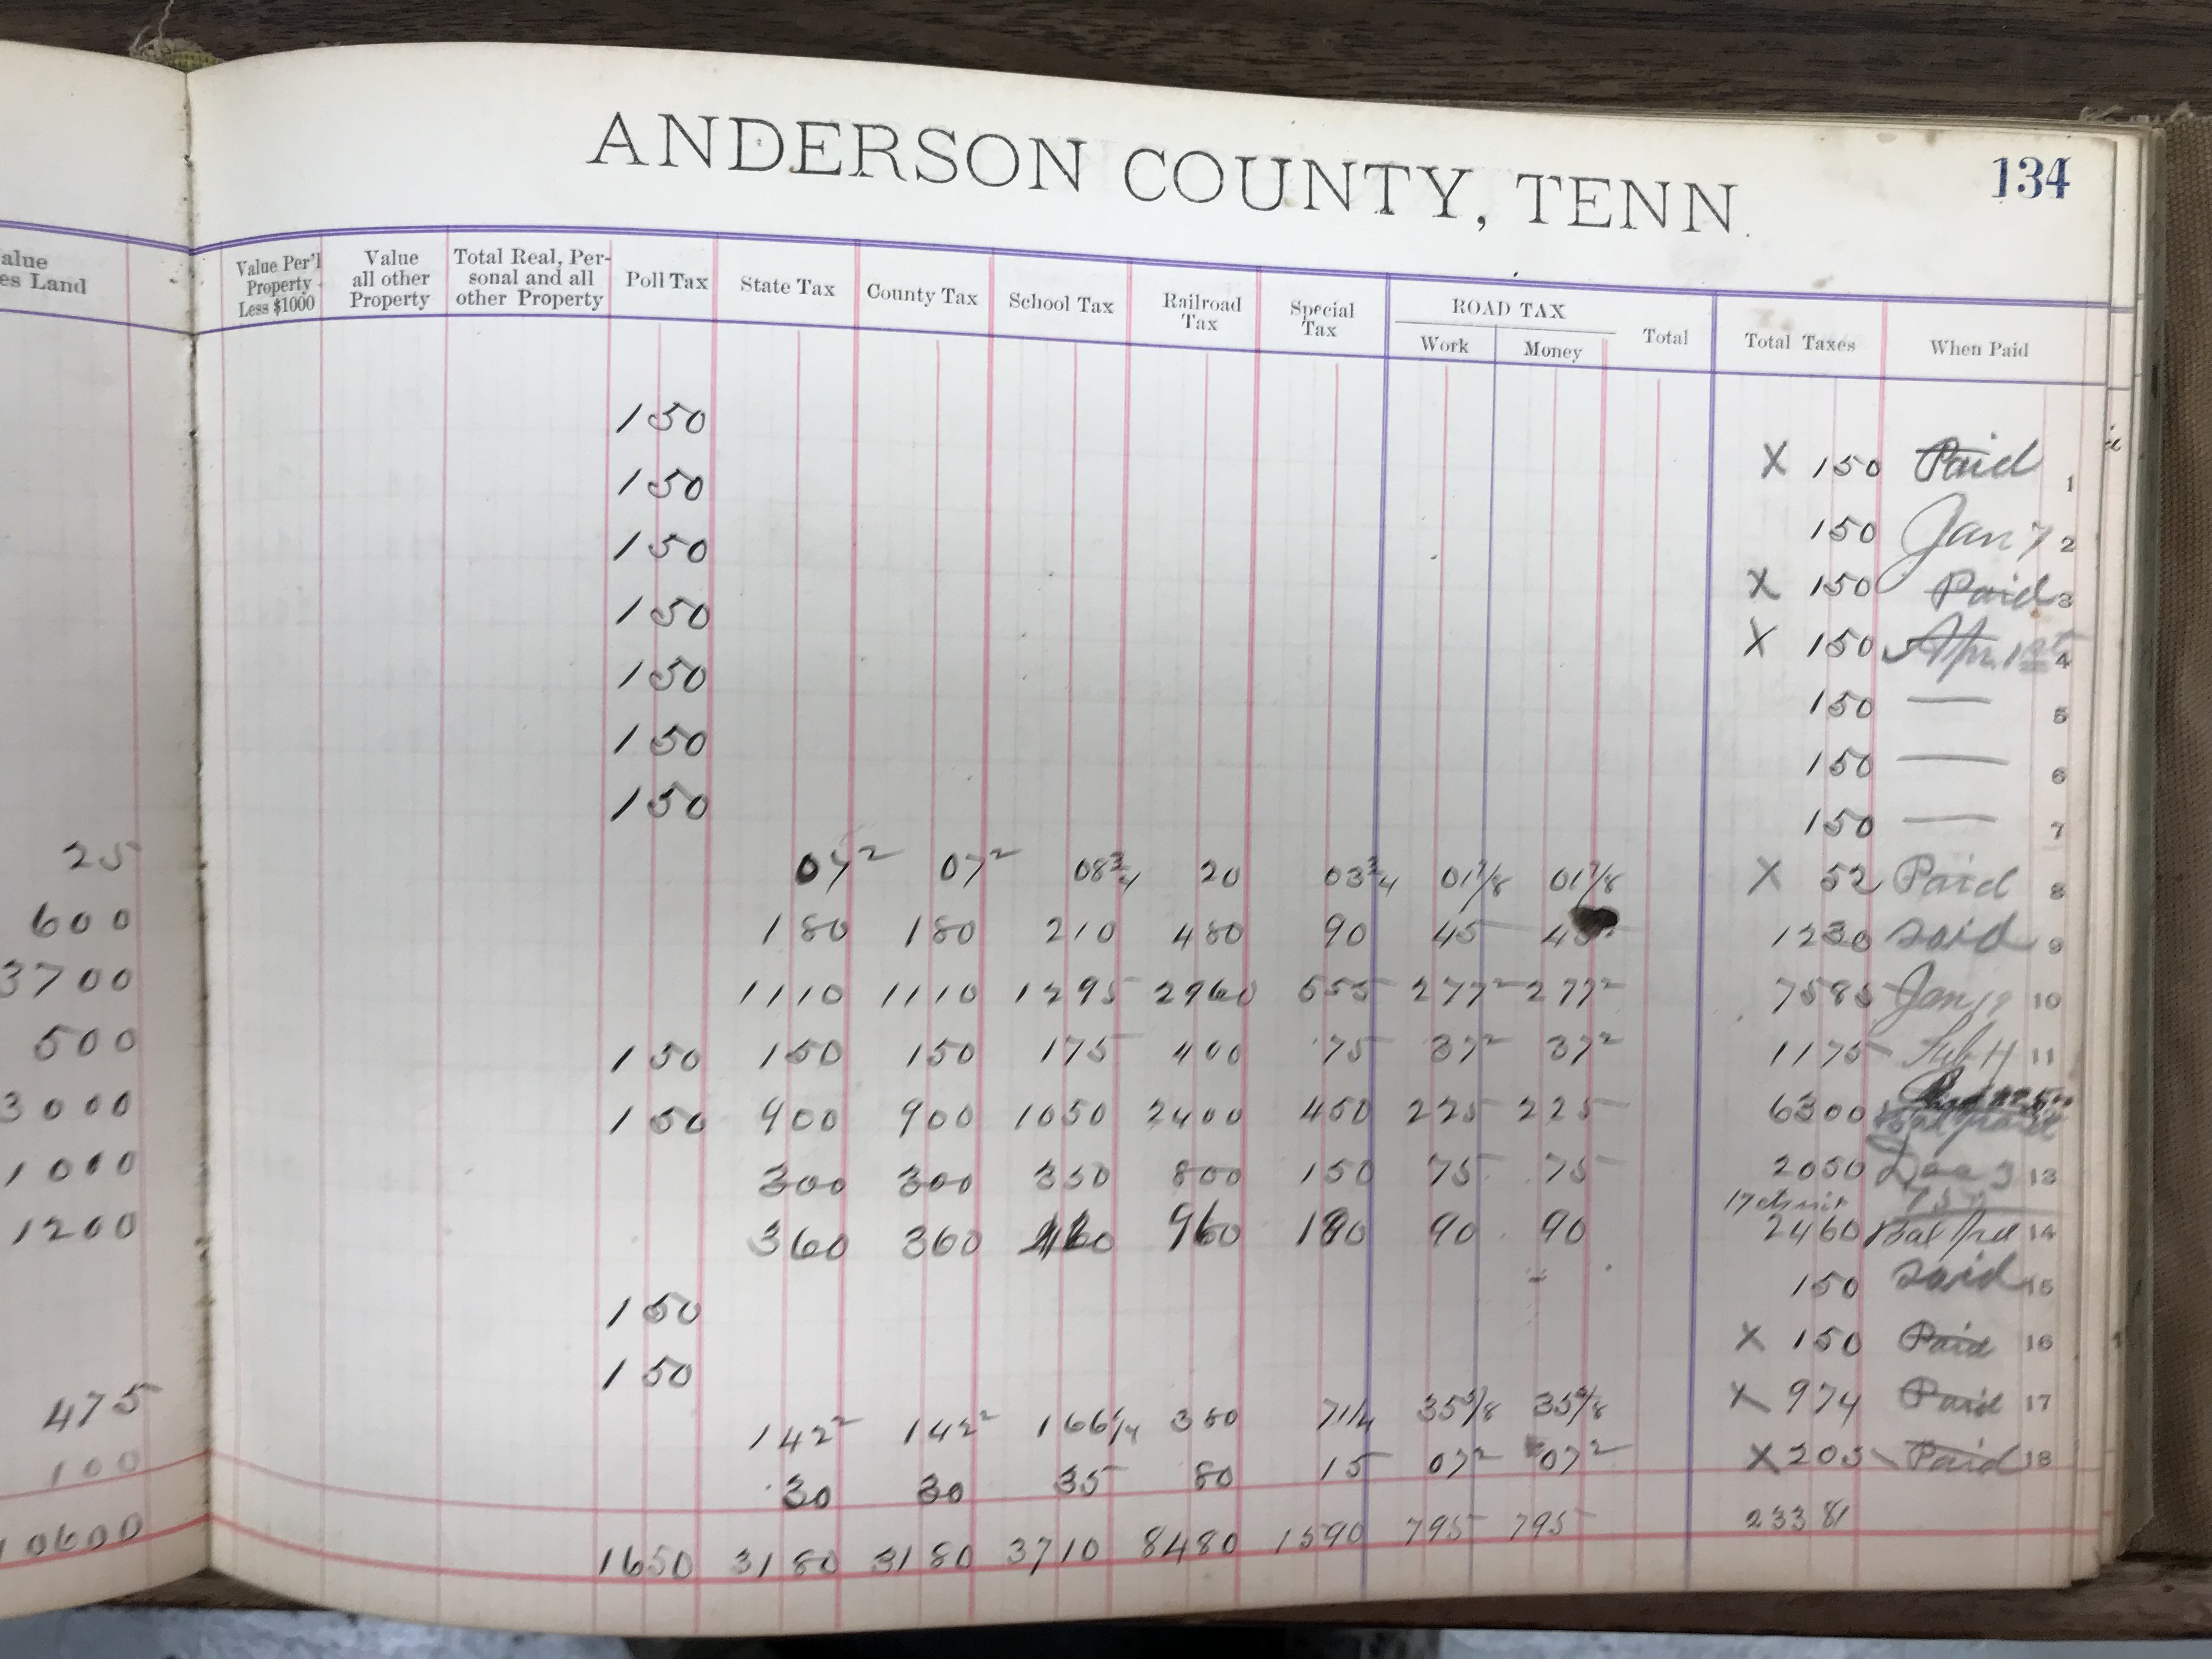 ANDERSON COUNTY, TENN.
134
alue
es Land
Value Per'l Property Less $1000
Value all other Property
Total Real, Personal and all other Property
Poll Tax
State Tax
County Tax
School Tax
Railroad Tax
Special Tax
ROAD TAX
Work
Money
Total
Total Taxes
When Paid
1 50 X 150 Paid 1
1 50 150 Jan 7 2
1 50 X 150 Paid 3
1 50 X 150 Apr. 1st 4
1 50 150 — 5
1 50 150 — 6
1 50 150 — 7
25 07² 07² 08 3/4 20 03 3/4 01 7/8 01 7/8 X 52 Paid 8
600 1 80 1 80 2 10 4 80 90 45 45 1230 Paid 9
3700 11 10 11 10 12 95 29 60 5 55 2 77² 2 77² 7585 Jan 10
500 1 50 1 50 1 50 1 75 4 00 75 37² 37² 1175 11
3000 1 50 9 00 9 00 10 50 24 00 4 50 2 25 2 25 6300
1000 3 00 3 00 3 50 8 00 1 50 75 75 2050 13
1200 3 60 3 60 9 60 1 80 90 90 2460 Bal Pd 14
1 50 150 Paid 15
1 50 X 150 Paid 16
475 1 42² 1 42² 1 66 1/4 3 80 71 1/4 35 5/8 35 5/8 X 974 Paid 17
100 30 30 35 80 15 07² 07² X 205 Paid 18
10600 16 50 31 80 31 80 37 10 84 80 15 90 7 95 7 95 233 81